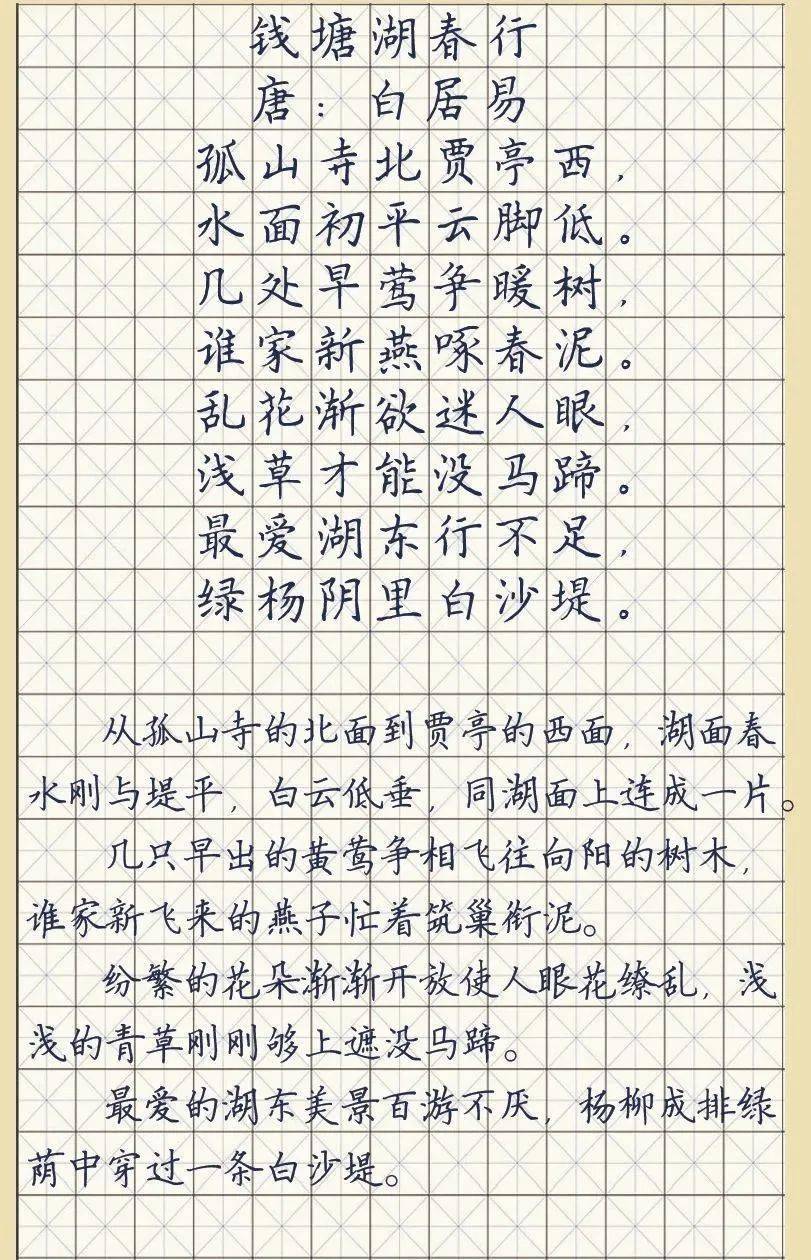 钱塘湖春行
唐：白居易
孤山寺北贾亭西，
水面初平云脚低。
几处早莺争暖树，
谁家新燕啄春泥。
乱花渐欲迷人眼，
浅草才能没马蹄。
最爱湖东行不足，
绿杨阴里白沙堤。
从孤山寺的北面到贾亭的西面，湖面春
水刚与堤平，白云低垂，同湖面上连成一片。
几只早出的黄莺争相飞往向阳的树木，
谁家新飞来的燕子忙着筑巢衔泥。
纷繁的花朵渐渐开放使人眼花缭乱，浅
浅的青草刚刚够上遮没马蹄。
最爱的湖东美景百游不厌，杨柳成排绿
荫中穿过一条白沙堤。